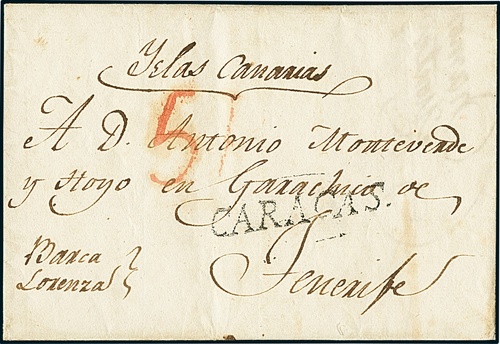 Yslas Canarias
5
A D. Antonio Monteverde
y Hoyo en Garachico de
CARACAS.
Tenerife
Barca
Lorenza